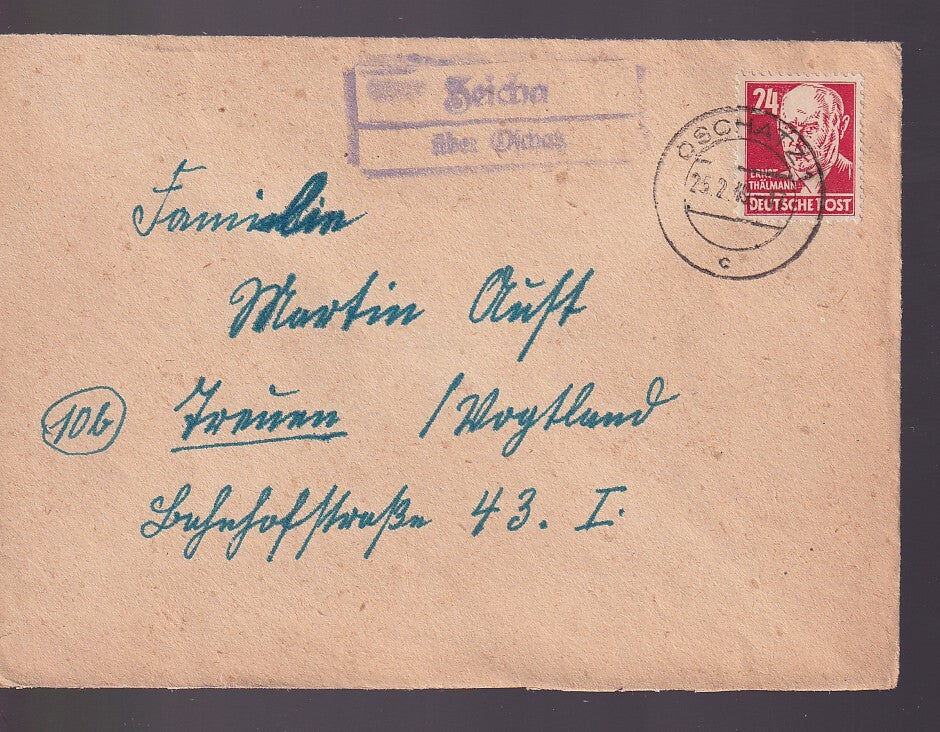 Zeicha
über Oschatz
24
ERNST
THÄLMANN
DEUTSCHE POST
OSCHATZ 1
25.2.49
c
Familie
Martin Aust
10b Treuen /Vogtland
Bahnhofstraße 43. I.